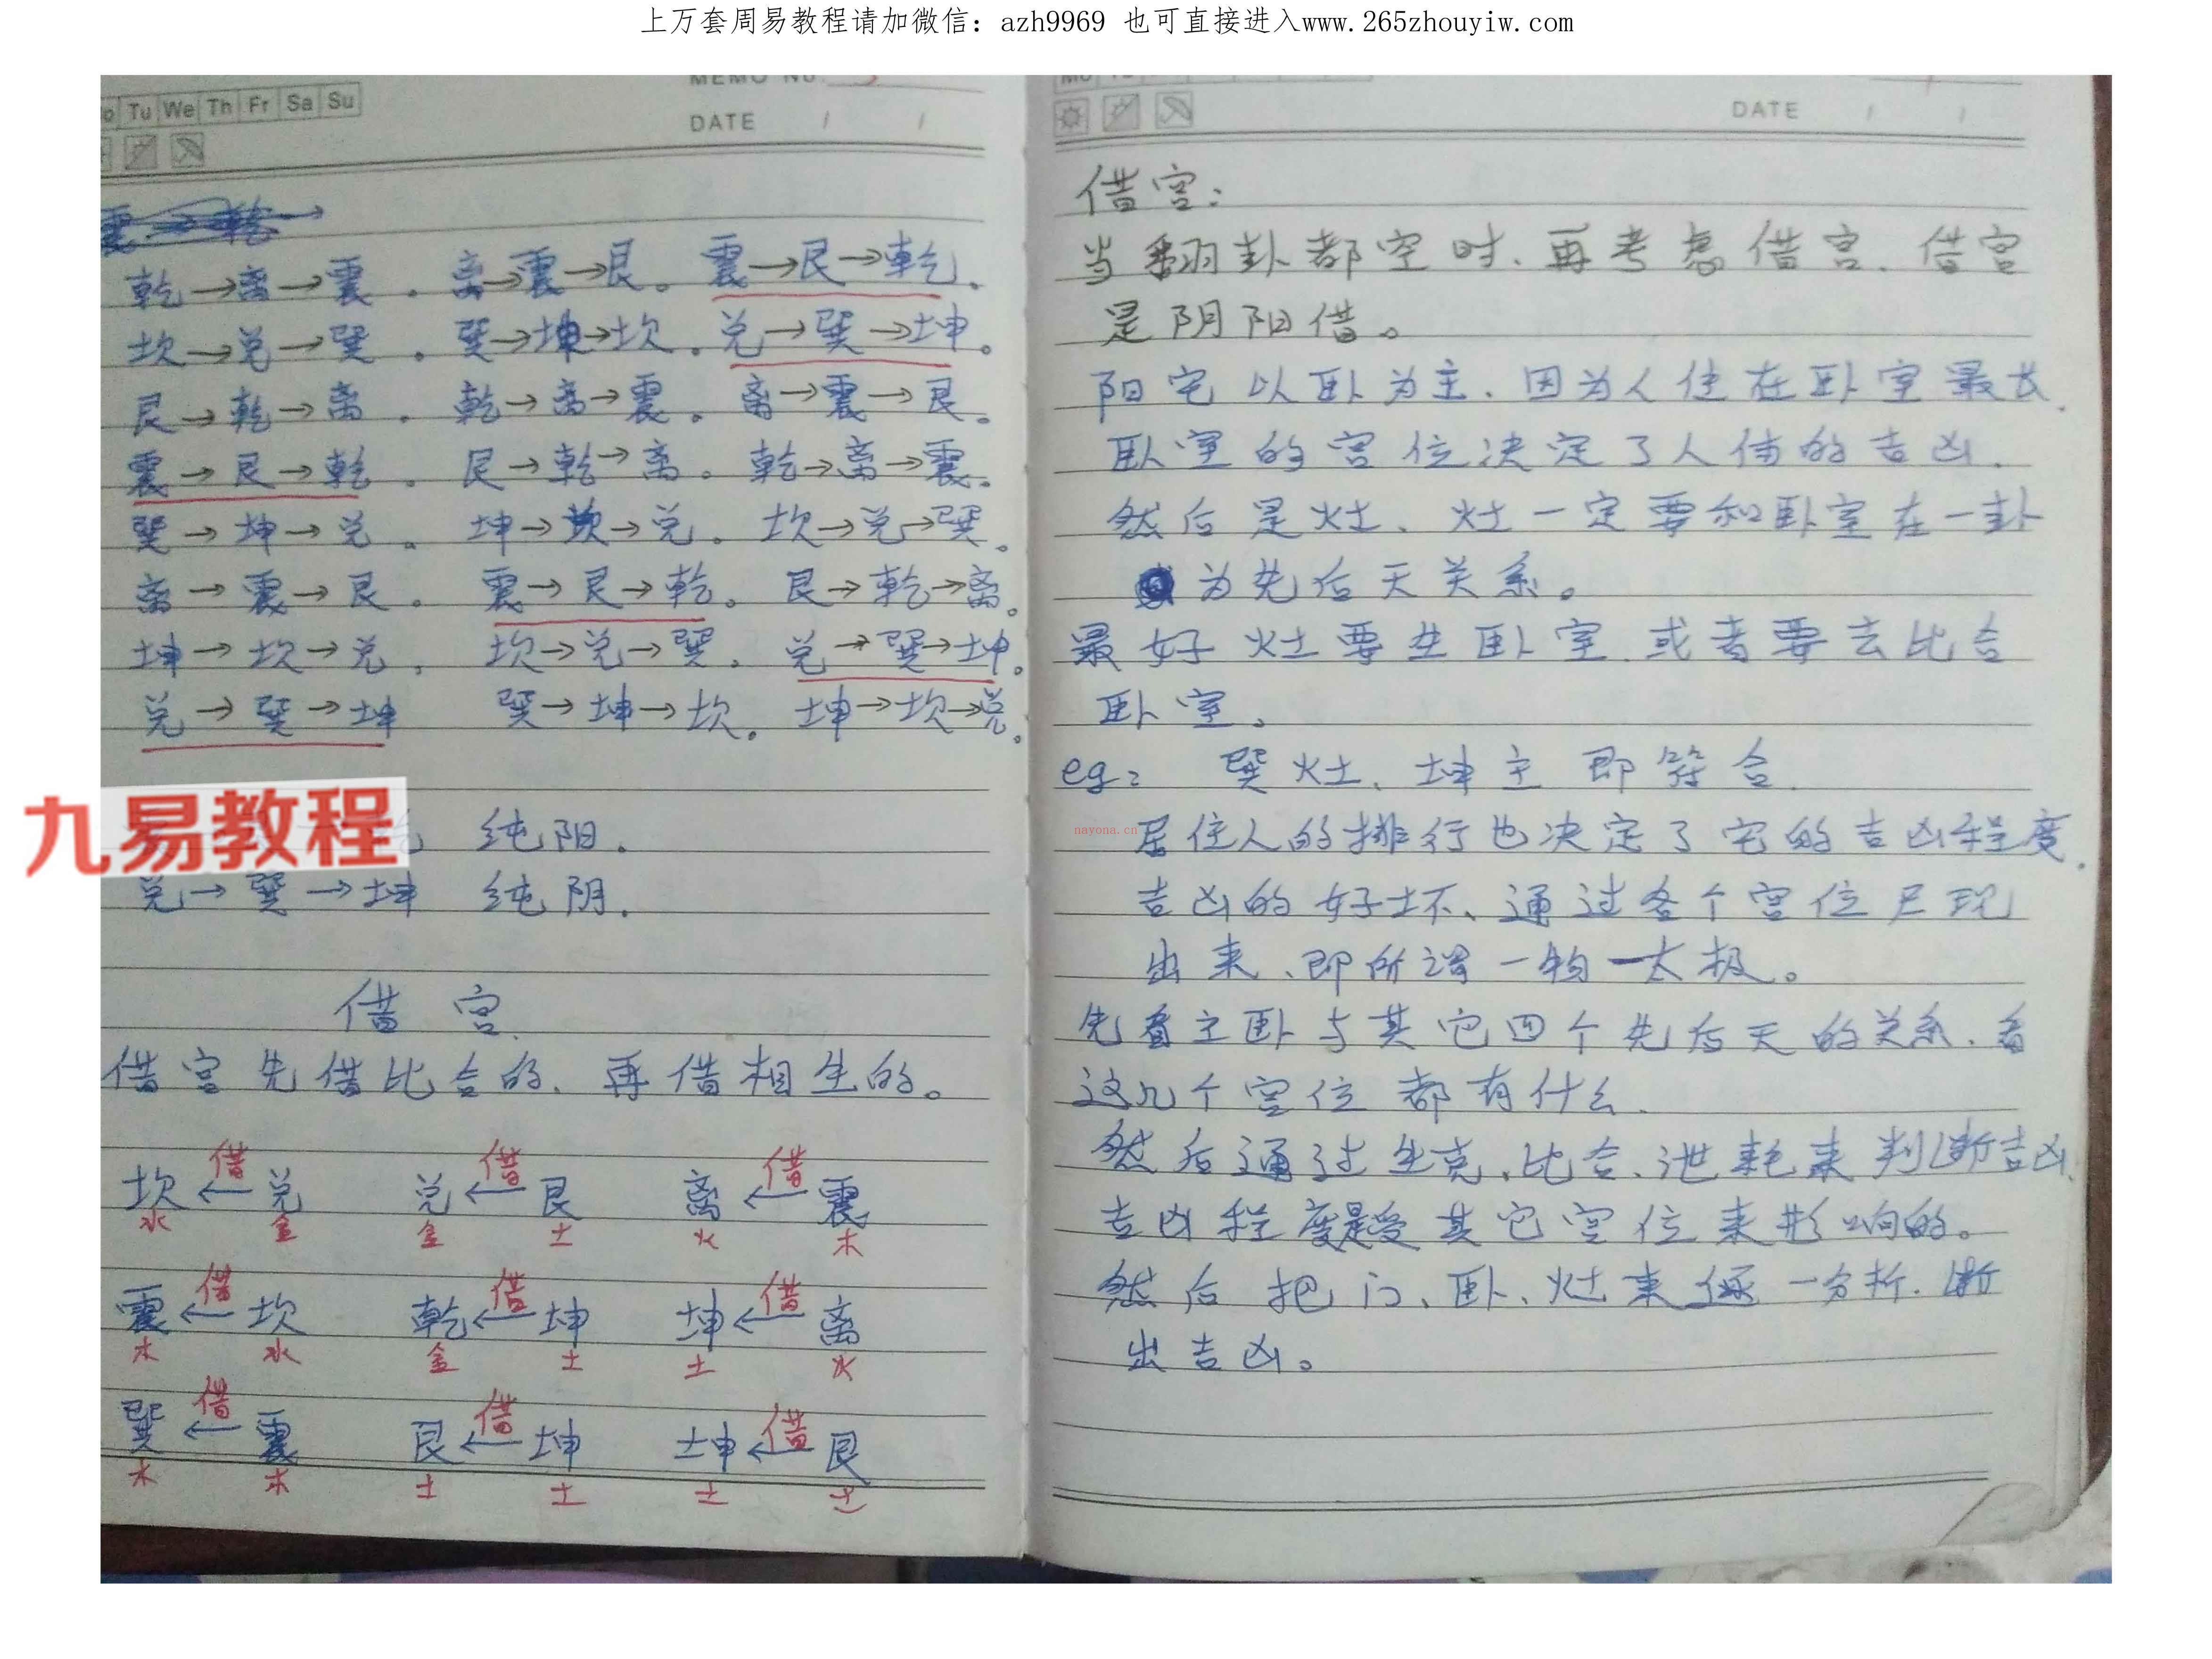 上万套周易教程请加微信：azh9969 也可直接进入www.265zhouyiw.com
Tu We Th Fr Sa Su
MEMO No. 3
DATE / /
乾→离→震。离→震→艮。震→艮→乾。
坎→兑→巽。巽→坤→坎。兑→巽→坤。
艮→乾→离。乾→离→震。离→震→艮。
震→艮→乾。艮→乾→离。乾→离→震。
巽→坤→兑。坤→坎→兑。坎→兑→巽。
离→震→艮。震→艮→乾。艮→乾→离。
坤→坎→兑。坎→兑→巽。兑→巽→坤。
兑→巽→坤 巽→坤→坎。坤→坎→兑。
九易教程
纯阳.
兑→巽→坤 纯阴.
借宫.
借宫先借比合的、再借相生的。
坎←借兑 兑←借艮 离←借震
水 金 金 土 火 木
震←借坎 乾←借坤 坤←借离
木 水 金 土 土 火
巽←借震 艮←借坤 坤←借艮
木 木 土 土 土 土
DATE / /
借宫：
当翻卦都空时、再考虑借宫、借宫
是阴阳借。
阳宅以卧为主、因为人住在卧室最长.
卧室的宫位决定了人体的吉凶.
然后是灶、灶一定要和卧室在一卦
为先后天关系。
最好灶要生卧室.或者要去比合
卧室。
eg: 巽灶、坤主即符合.
nayona.cn
居住人的排行也决定了宅的吉凶程度.
吉凶的好坏、通过各个宫位呈现
出来、即所谓一物一太极。
先看主卧与其它四个先后天的关系.看
这几个宫位都有什么.
然后通过生克、比合、泄耗来判断吉凶.
吉凶程度是受其它宫位来影响的。
然后把门、卧、灶来逐一分析.断
出吉凶。